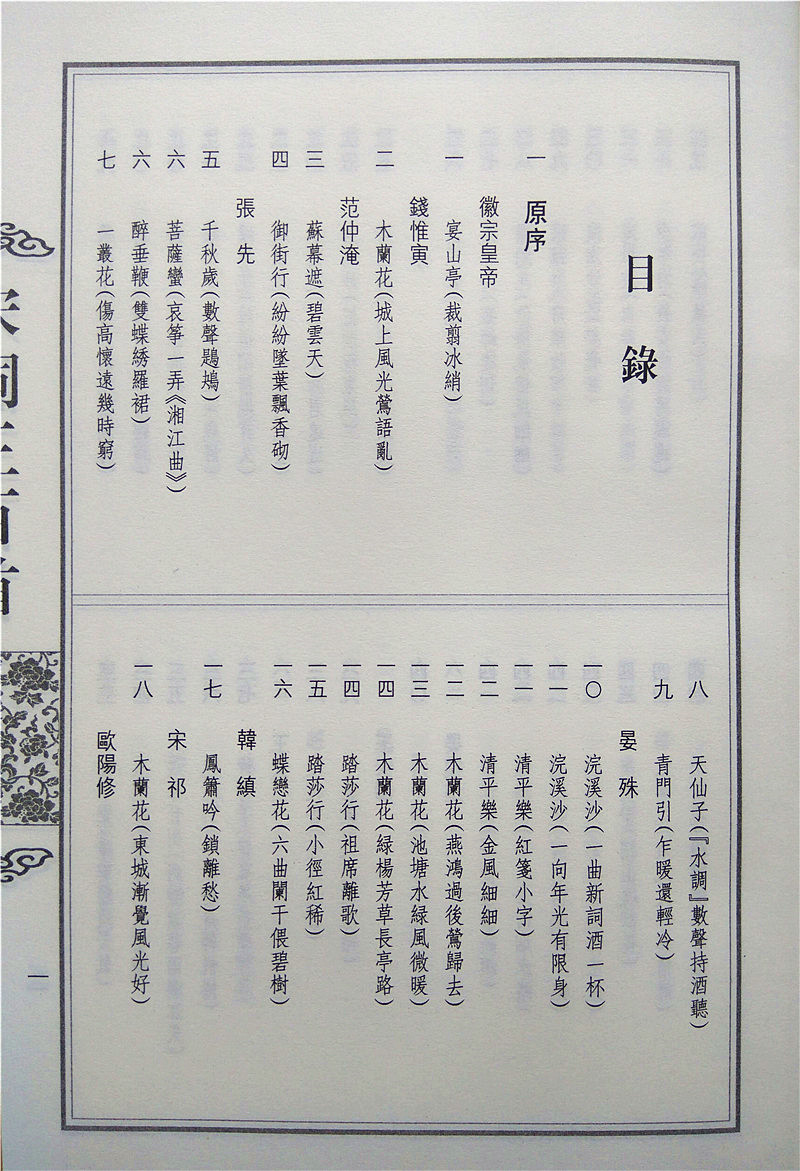 目錄
一 原序
徽宗皇帝
一 宴山亭(裁翦冰綃)
錢惟寅
二 木蘭花(城上風光鶯語亂)
范仲淹
三 蘇幕遮(碧雲天)
四 御街行(紛紛墜葉飄香砌)
張先
五 千秋歲(數聲鶗鴂)
六 菩薩蠻(哀箏一弄《湘江曲》)
六 醉垂鞭(雙蝶綉羅裙)
七 一叢花(傷高懷遠幾時窮)
八 天仙子(『水調』數聲持酒聽)
九 青門引(乍暖還輕冷)
晏殊
一〇 浣溪沙(一曲新詞酒一杯)
一一 浣溪沙(一向年光有限身)
一一 清平樂(紅箋小字)
一二 清平樂(金風細細)
一二 木蘭花(燕鴻過後鶯歸去)
一三 木蘭花(池塘水緑風微暖)
一四 木蘭花(緑楊芳草長亭路)
一四 踏莎行(祖席離歌)
一五 踏莎行(小徑紅稀)
一六 蝶戀花(六曲闌干偎碧樹)
韓縝
一七 鳳簫吟(鎖離愁)
宋祁
一八 木蘭花(東城漸覺風光好)
歐陽修
宋詞三百首
一